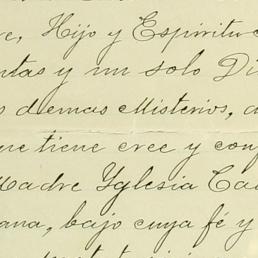 re, Hijo y Espiritu
ntas y un solo Di
s demas Misterios, a
ue tiene cree y conf
Madre Yglesia Ca
ana, bajo cuya fé y